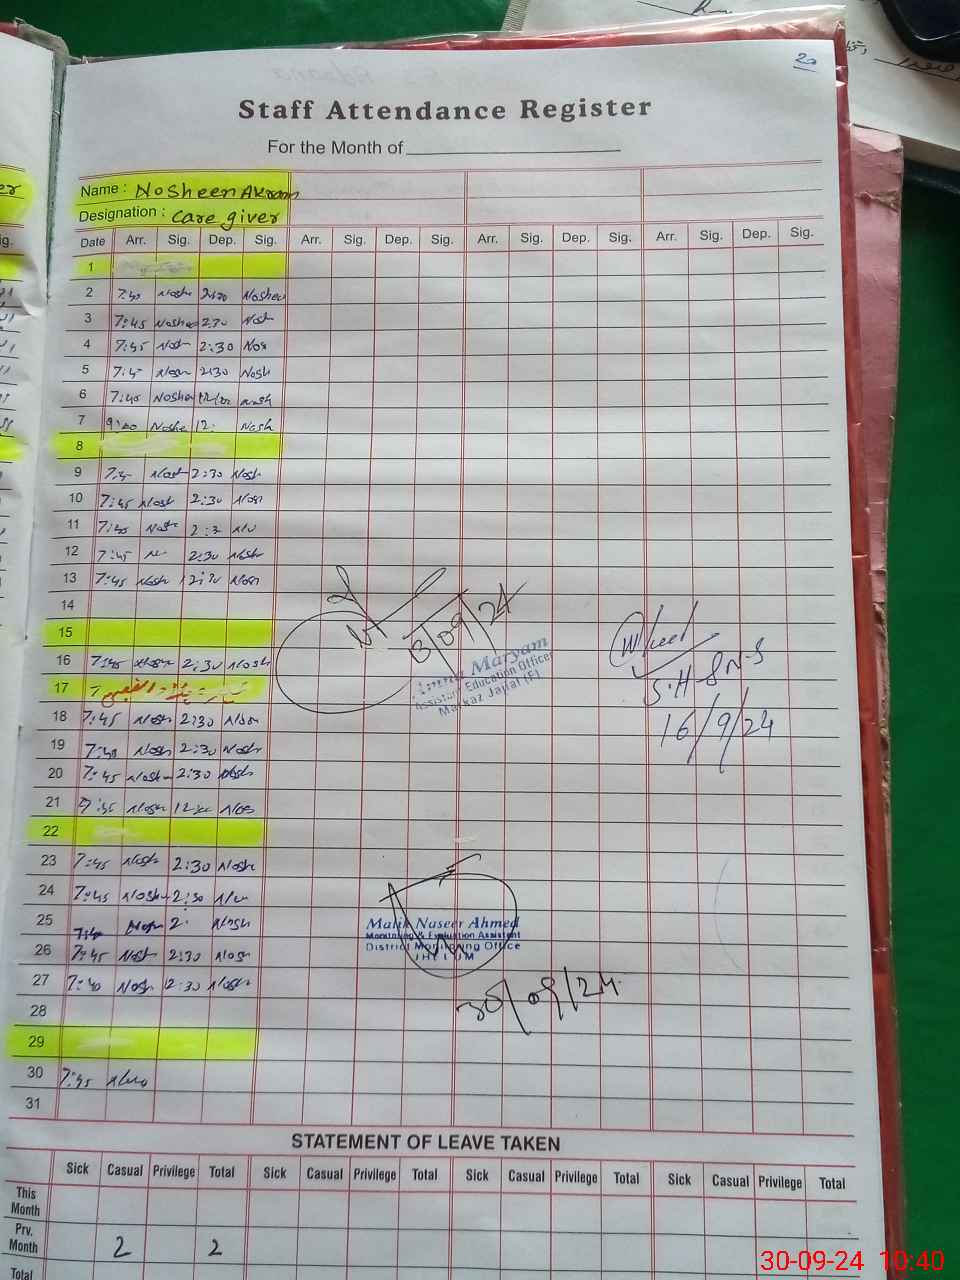 20
Staff Attendance Register
For the Month of
Name : Nosheen Akram
Designation : Care giver
Date Arr. Sig. Dep. Sig. Arr. Sig. Dep. Sig. Arr. Sig. Dep. Sig. Arr. Sig. Dep. Sig.
1
2 7:40 Noshe Noshee
3 7:45 Noshee 2:30 Nosh
4 7:45 Nosh 2:30 Nos
5 Nosh 2:30 Nosh
6 7:40 Noshe Nosh
7 9:00 Noshe 12: Nosh
8
9 Nosh 2:30 Nosh
10 7:45 Nosh 2:30 Nosh
11 7:40 Nosh
12 7:45 2:30 Nosh
13 7:45 Nosh 2:30 Nosh
14
15
16 7:45 Nosh 2:30 Nosh
17
18 7:45 Nosh 2:30 Nosh
19 7:40 Nosh 2:30 Nosh
20 7:45 Nosh 2:30 Nosh
21 Nosh Nos
22
23 7:45 Nosh 2:30 Noshe
24 7:45 Nosh 2:30
25 Nosh 2: Nosh
26 7:45 Nosh 2:30 Nosh
27 7:40 Nosh 2:30 Nosh
28
29
30 7:45
31
13/09/24
Amna Maryam
Assistant Education Officer
Markaz Jallal (F)
S.H S N-S
16/9/24
Malik Naseer Ahmed
Monitoring & Evaluation Assistant
District Monitoring Office
JHELUM
30/09/24
STATEMENT OF LEAVE TAKEN
Sick Casual Privilege Total Sick Casual Privilege Total Sick Casual Privilege Total Sick Casual Privilege Total
This Month
Prv. Month 2 2
Total
30-09-24 10:40